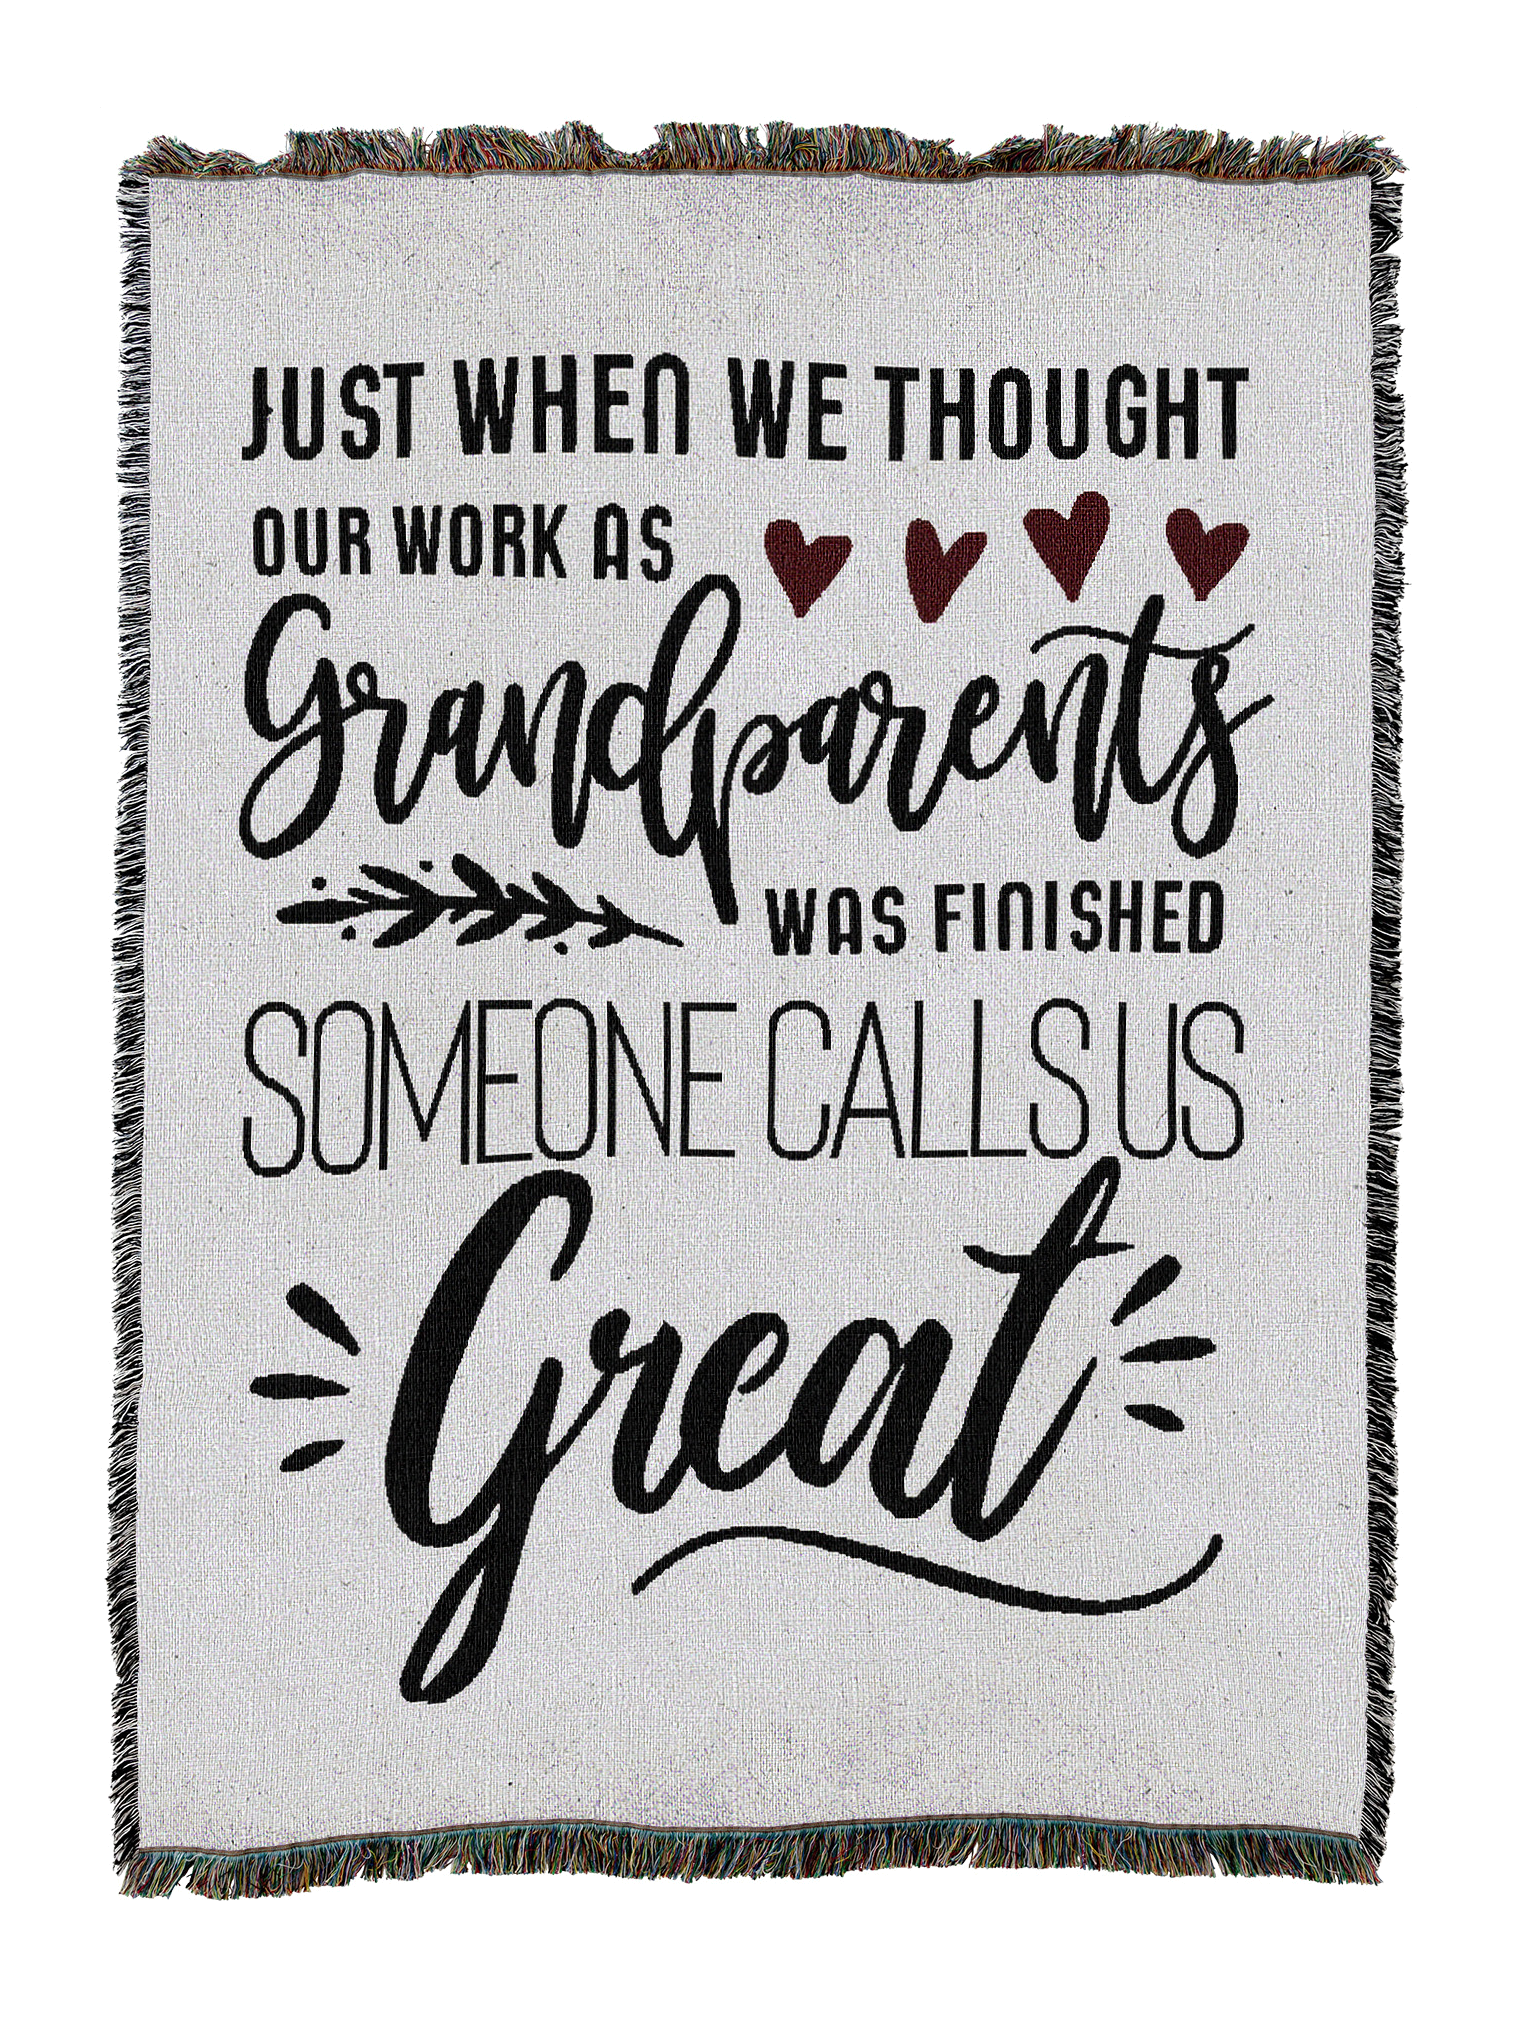 JUST WHEN WE THOUGHT
OUR WORK AS
Grandparents
WAS FINISHED
SOMEONE CALLS US
Great